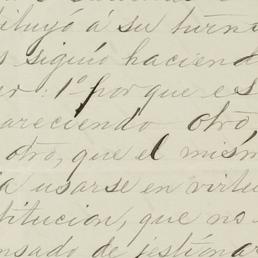 tituyó á su turn
s siguió haciend
r: 1º porque es
areciendo otro,
otro, que el mism
a usarse en virtu
titucion, que no
nsado de jestionar